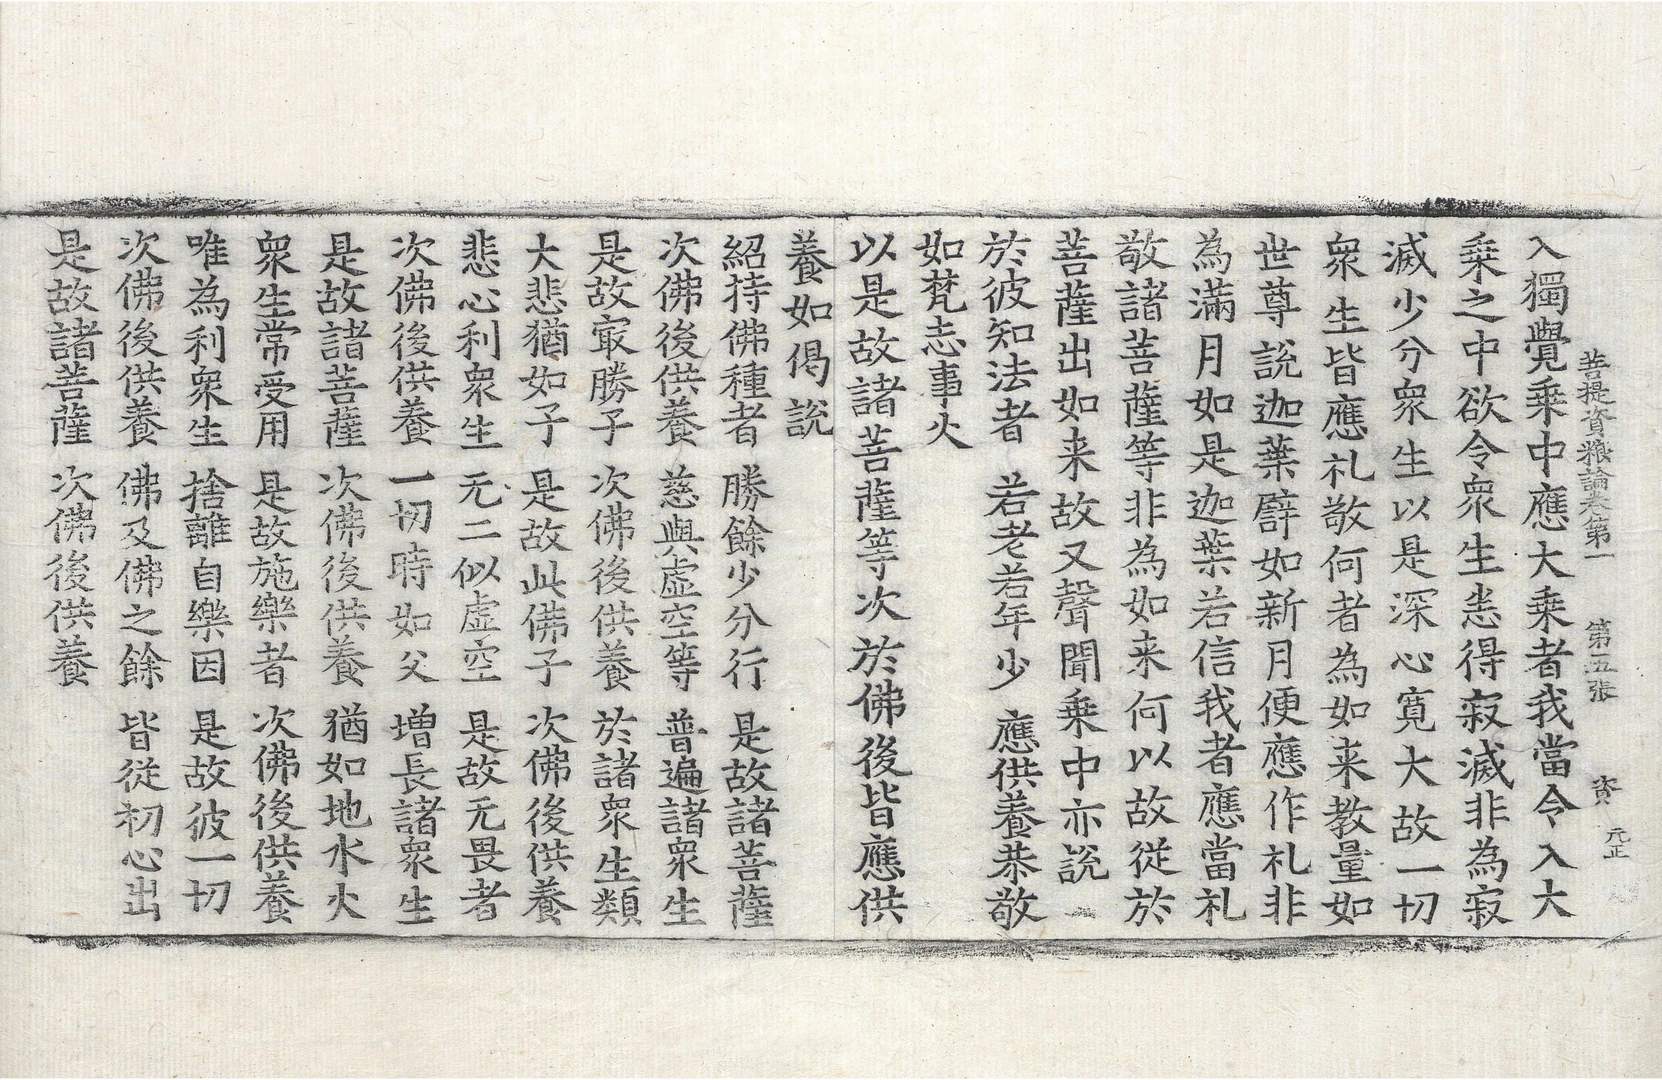 菩提資粮論卷第一　第五張　資　元正
入獨覺乗中應大乗者我當令入大
乗之中欲令衆生悉得寂滅非為寂
滅少分衆生以是深心寛大故一切
衆生皆應礼敬何者為如来教量如
世尊說迦葉譬如新月便應作礼非
為滿月如是迦葉若信我者應當礼
敬諸菩薩等非為如来何以故従於
菩薩出如来故又聲聞乗中亦說
於彼知法者　若老若年少　應供養恭敬
如梵志事火
以是故諸菩薩等次於佛後皆應供
養如偈說
紹持佛種者　勝餘少分行　是故諸菩薩
次佛後供養　慈與虚空等　普遍諸衆生
是故冣勝子　次佛後供養　於諸衆生類
大悲猶如子　是故此佛子　次佛後供養
悲心利衆生　无二似虚空　是故无畏者
次佛後供養　一切時如父　増長諸衆生
是故諸菩薩　次佛後供養　猶如地水火
衆生常受用　是故施樂者　次佛後供養
唯為利衆生　捨離自樂因　是故彼一切
次佛後供養　佛及佛之餘　皆従初心出
是故諸菩薩　次佛後供養